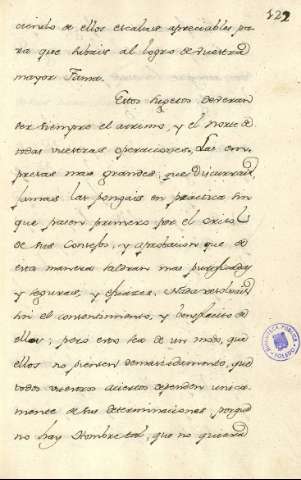 122
ciendo de ellos escalas apreciables, pa
ra que subais al logro de vuestra
mayor Fama.
Estos sugetos deveran
ser siempre el arrimo, y el norte de
todas vuestras operaciones. Las em
presas mas grandes, que discurrais,
jamas las pongais en practica sin
que pasen primero por el crisol
de sus Consejos, y aprobacion, que de
esta manera saldran mas purificadas
y seguras, y eficaces. Nada resolvais
sin el consentimiento, y beneplacito de
ellos; pero esto sea de un modo, que
ellos no piensen demasiadamente, que
todos vuestros aciertos dependen unica
mente de sus determinaciones, porque
no hay Hombre tal, que no quiera
BIBLIOTECA PÚBLICA
TOLEDO